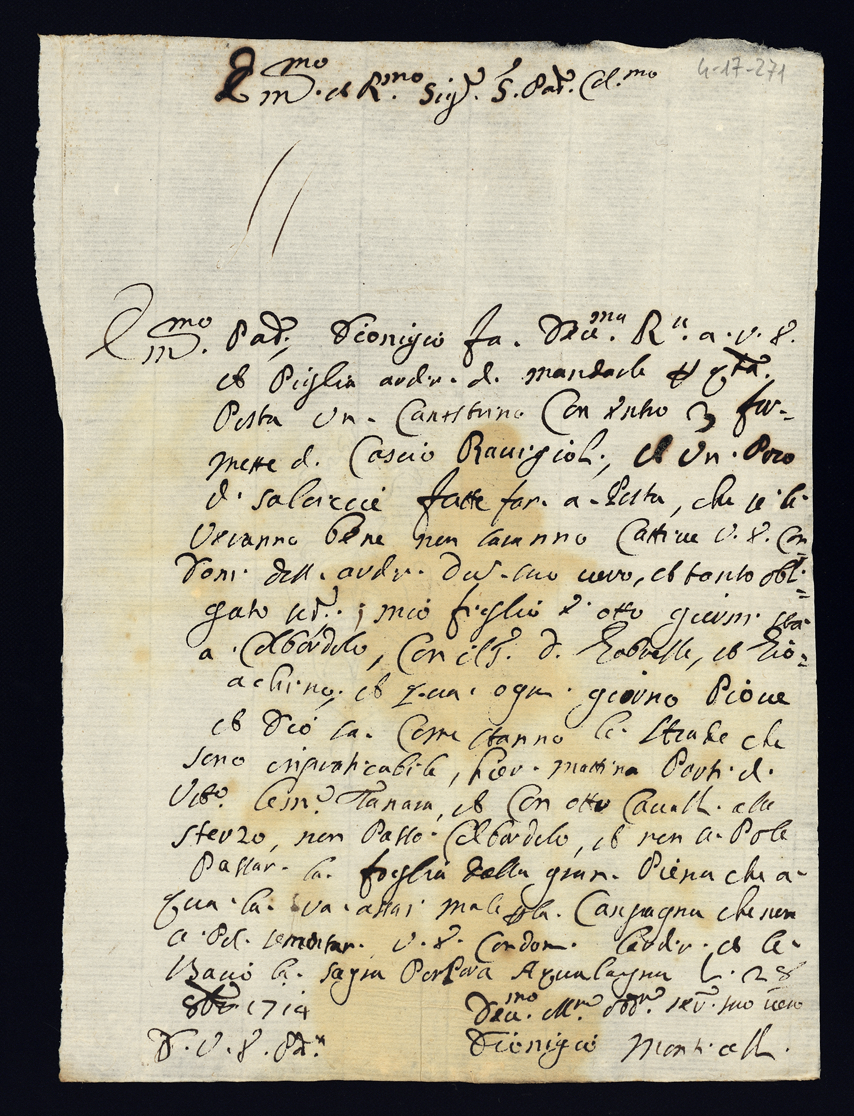 4-17-271
Emo. et Rmo. Sigr. S. Padr. Col.mo
Emo. Padr. Dionigio fa. R.a a. V. S.
et Piglia ardir. di. mandarle
Posta Un. Canestrino Con entro 3 for=
mette d. Cascio Ravigiol., et Un. Poco
di salciccie fatte far. a. Posta, che se li
veranno bene non saranno Cattive V. S. Con
doni dell. ardir. Del. suo vero, et tanto obli=
gato ; mio figlio otto giorni sta
a. Colbordolo, Con D. et Gio=
achino, et qua. ogni. giorno Piove
et Dio sa. Come stanno le. strade che
sono inpraticabile, hier. mattina Parti. d.
Tanara, et Con otto Cavall. alle
sterzo, non Passo. Colbordolo, et non si. Pole
Passar. la. foglia della gran. Piena che a=
qua. la. va. assai male la. Canpagna che non
si. Pol. semētar. V. S. Condon. l'ardir. et le.
Bacio la. sagra Porpora Aqualagna l. 28
8bre 1714
Dio.mo suo vero
D. V. S.
Dionigio Monticelli.